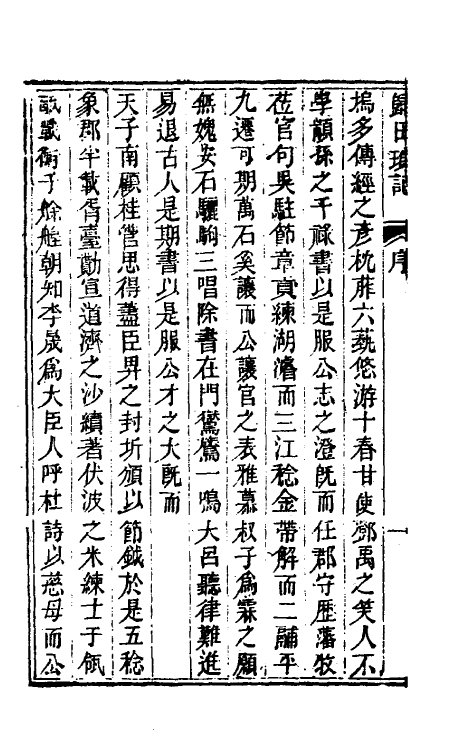 歸田瑣記　序　一
塢多傳經之彥枕葄六蓺悠游十春甘使鄧禹之笑人不
學顓孫之干祿書以是服公志之澄旣而任郡守歷藩牧
莅官句吳駐節章貢練湖濬而三江稔金帶解而二鬴平
九遷可期萬石奚讓而公讓官之表雅慕叔子爲霖之願
無媿安石驪駒三唱除書在門鸑鷟一鳴大呂聽律難進
易退古人是期書以是服公才之大旣而
天子南顧桂管思得藎臣畀之封圻頒以節鉞於是五稔
象郡半載胥臺勳宣道濟之沙績著伏波之米練士子𤬪
瓞蠶衞子艅艎朝知李晟爲大臣人呼杜詩以慈母而公